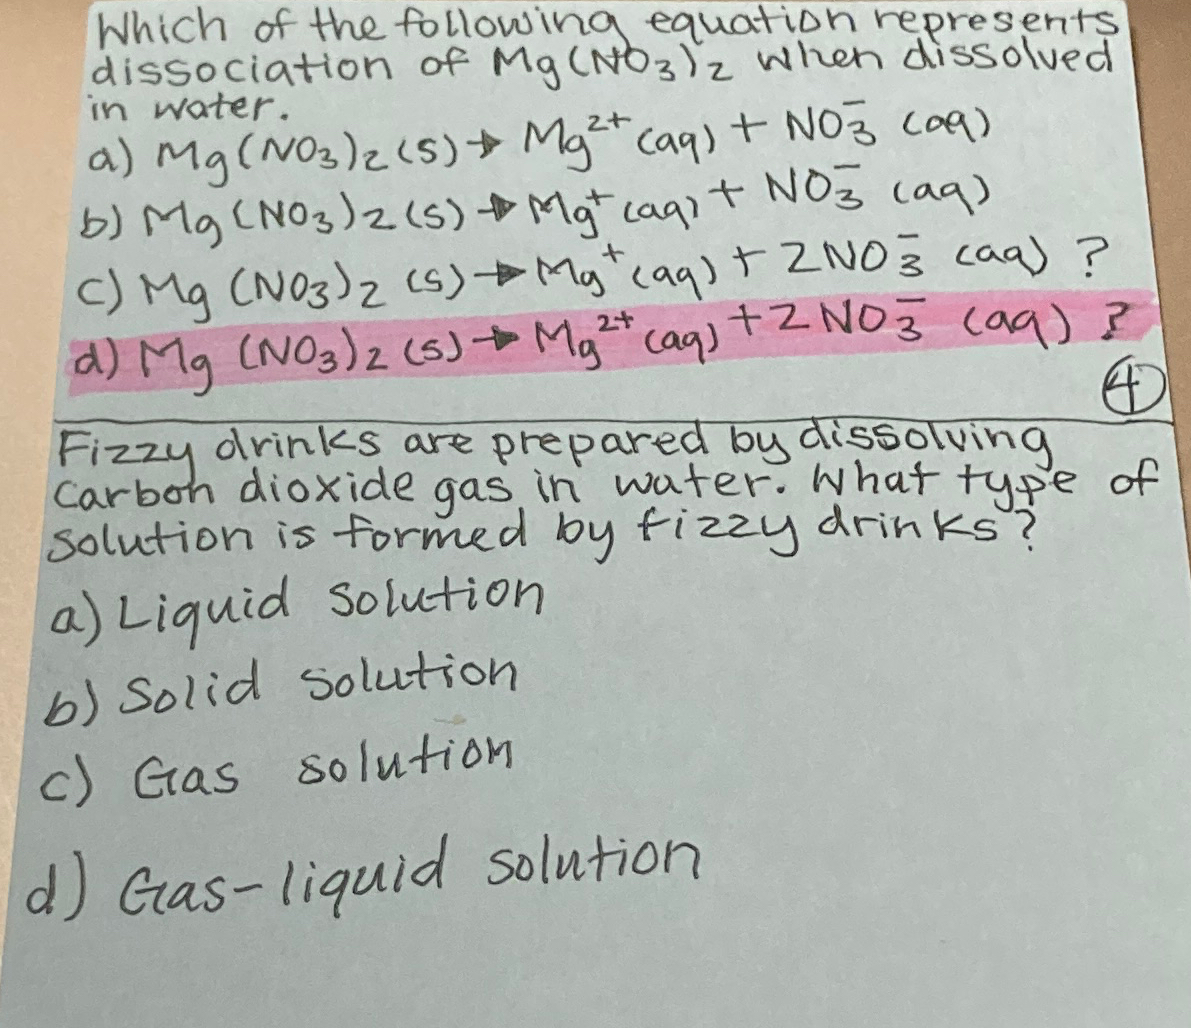 Which of the following equation represents
dissociation of Mg(NO₃)₂ when dissolved
in water.
a) Mg(NO₃)₂(s) → Mg²⁺(aq) + NO₃⁻ (aq)
b) Mg(NO₃)₂(s) → Mg⁺(aq) + NO₃⁻ (aq)
c) Mg (NO₃)₂ (s) → Mg⁺(aq) + 2NO₃⁻ (aq) ?
d) Mg (NO₃)₂ (s) → Mg²⁺(aq) + 2NO₃⁻ (aq) ?
④
Fizzy drinks are prepared by dissolving
carbon dioxide gas in water. What type of
solution is formed by fizzy drinks?
a) Liquid solution
b) Solid solution
c) Gas solution
d) Gas-liquid solution